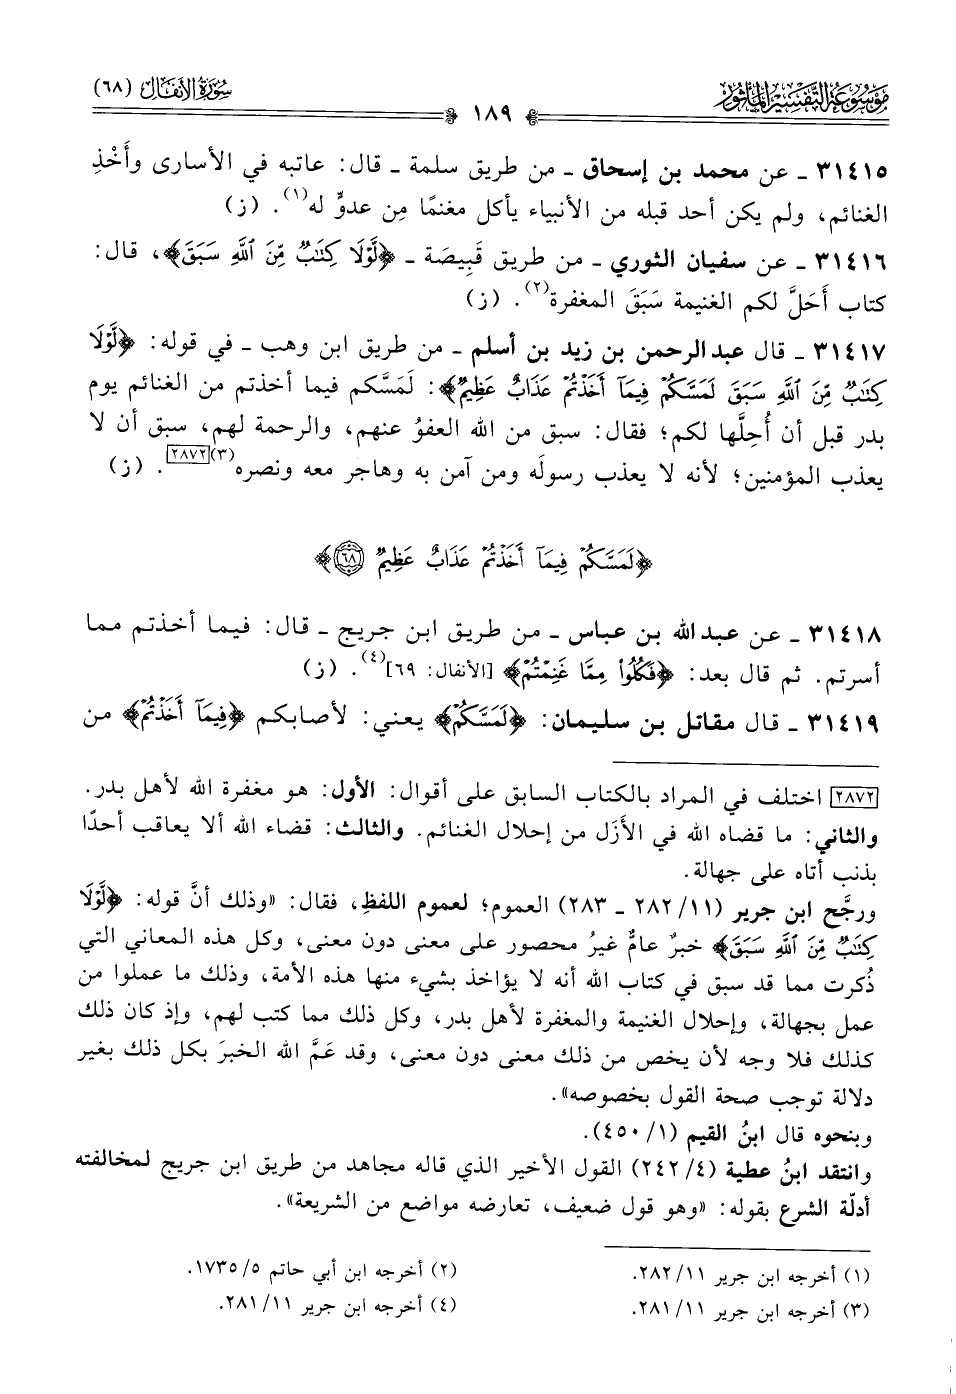 موسوعة التفسير المأثور
سورة الأنفال (٦٨)
١٨٩
٣١٤١٥ ـ عن محمد بن إسحاق ـ من طريق سلمة ـ قال: عاتبه في الأسارى وأَخْذِ
الغنائم، ولم يكن أحد قبله من الأنبياء يأكل مغنمًا مِن عدوٍّ له(١). (ز)
٣١٤١٦ ـ عن سفيان الثوري ـ من طريق قَبِيصَة ـ ﴿لَّوْلَا كِتَٰبٌ مِّنَ ٱللَّهِ سَبَقَ﴾، قال:
كتاب أَحَلَّ لكم الغنيمة سَبَقَ المغفرة(٢). (ز)
٣١٤١٧ ـ قال عبدالرحمن بن زيد بن أسلم ـ من طريق ابن وهب ـ في قوله: ﴿لَّوْلَا
كِتَٰبٌ مِّنَ ٱللَّهِ سَبَقَ لَمَسَّكُمْ فِيمَآ أَخَذْتُمْ عَذَابٌ عَظِيمٌ﴾: لَمَسَّكم فيما أخذتم من الغنائم يوم
بدر قبل أن أُحِلَّها لكم؛ فقال: سبق من الله العفوُ عنهم، والرحمة لهم، سبق أن لا
يعذب المؤمنين؛ لأنه لا يعذب رسولَه ومن آمن به وهاجر معه ونصره(٣)[٢٨٧٢]. (ز)
﴿لَمَسَّكُمْ فِيمَآ أَخَذْتُمْ عَذَابٌ عَظِيمٌ ٦٨﴾
٣١٤١٨ ـ عن عبدالله بن عباس ـ من طريق ابن جريج ـ قال: فيما أخذتم مما
أسرتم. ثم قال بعد: ﴿فَكُلُوا۟ مِمَّا غَنِمْتُمْ﴾ [الأنفال: ٦٩](٤). (ز)
٣١٤١٩ ـ قال مقاتل بن سليمان: ﴿لَمَسَّكُمْ﴾ يعني: لأصابكم ﴿فِيمَآ أَخَذْتُمْ﴾ من
[٢٨٧٢] اختلف في المراد بالكتاب السابق على أقوال: الأول: هو مغفرة الله لأهل بدر.
والثاني: ما قضاه الله في الأَزَل من إحلال الغنائم. والثالث: قضاء الله ألا يعاقب أحدًا
بذنب أتاه على جهالة.
ورجَّح ابن جرير (١١/ ٢٨٢ ـ ٢٨٣) العموم؛ لعموم اللفظِ، فقال: «وذلك أنَّ قوله: ﴿لَّوْلَا
كِتَٰبٌ مِّنَ ٱللَّهِ سَبَقَ﴾ خبرٌ عامٌّ غيرُ محصور على معنى دون معنى، وكل هذه المعاني التي
ذُكرت مما قد سبق في كتاب الله أنه لا يؤاخذ بشيء منها هذه الأمة، وذلك ما عملوا من
عمل بجهالة، وإحلال الغنيمة والمغفرة لأهل بدر، وكل ذلك مما كتب لهم، وإذ كان ذلك
كذلك فلا وجه لأن يخص من ذلك معنى دون معنى، وقد عَمَّ الله الخبرَ بكل ذلك بغير
دلالة توجب صحة القول بخصوصه».
وبنحوه قال ابنُ القيم (١/ ٤٥٠).
وانتقد ابنُ عطية (٤/ ٢٤٢) القول الأخير الذي قاله مجاهد من طريق ابن جريج لمخالفته
أدلّة الشرع بقوله: «وهو قول ضعيف، تعارضه مواضع من الشريعة».
(١) أخرجه ابن جرير ١١/ ٢٨٢.
(٢) أخرجه ابن أبي حاتم ٥/ ١٧٣٥.
(٣) أخرجه ابن جرير ١١/ ٢٨١.
(٤) أخرجه ابن جرير ١١/ ٢٨١.